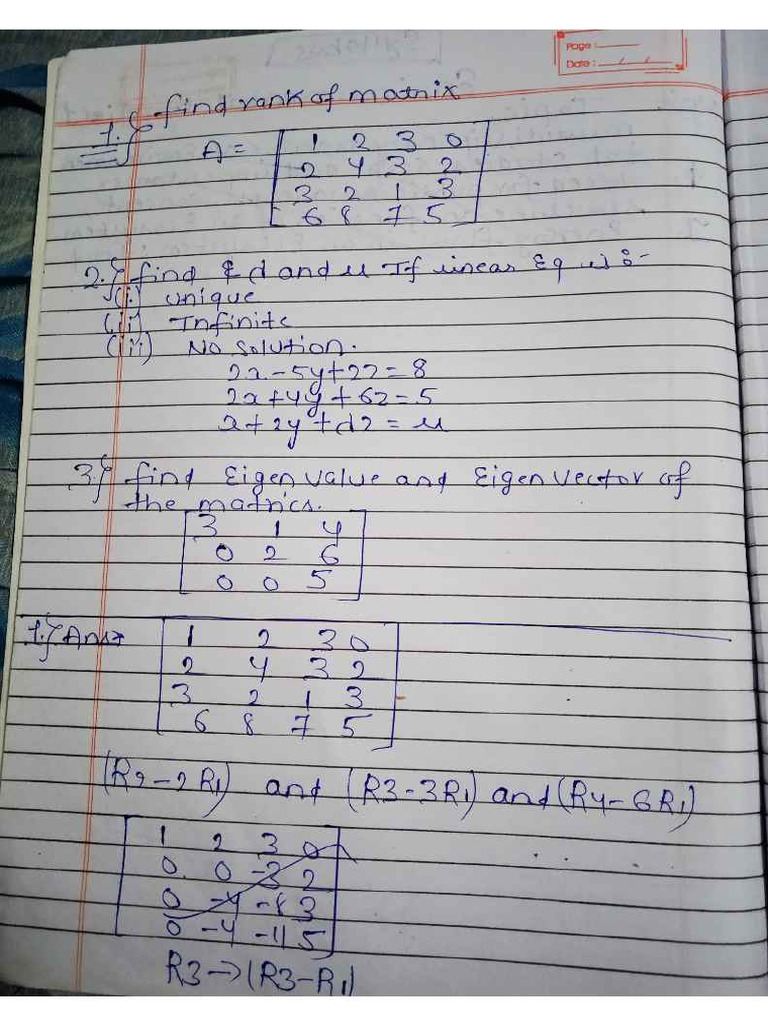 Page:
Date: / /
1.} find rank of matrix
A = [ 1 2 3 0
2 4 3 2
3 2 1 3
6 8 7 5 ]
2.} find & d and u If linear Eq is:-
(i) unique
(ii) Infinite
(iii) No solution.
2x-5y+2z=8
2x+4y+6z=5
x+2y+dz=u
3.} find Eigen value and Eigen vector of
the matrics.
[ 3 1 4
0 2 6
0 0 5 ]
1.} Ans:
[ 1 2 3 0
2 4 3 2
3 2 1 3
6 8 7 5 ]
(R2-2R1) and (R3-3R1) and (R4-6R1)
[ 1 2 3 0
0 0 -3 2
0 -4 -8 3
0 -4 -11 5 ]
R3→(R3-R1)